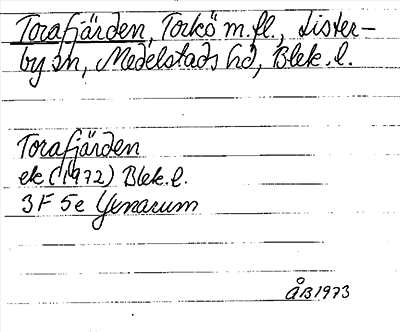 Torafjärden, Torkö m.fl., Lister-
by sn, Medelstads hd, Blek. l.
Torafjärden
ek (1972) Blek. l.
3 F 5 e Yenarum
ÅB 1973